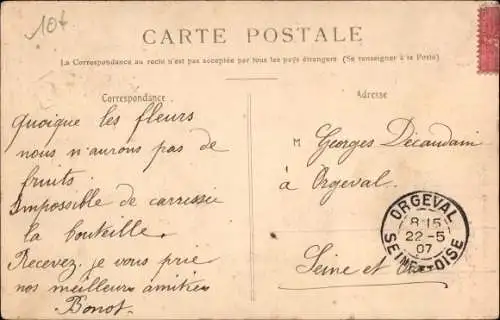 10f
CARTE POSTALE
La Correspondance au recto n'est pas acceptée par tous les pays étrangers (Se renseigner à la Poste)
Correspondance
Adresse
Quoique les fleurs
nous n'aurons pas de
fruits.
Impossible de carressie
la bouteille.
Recevez je vous prie
nos meilleurs amitiés
Bonot.
M Georges Décaudain
à Orgeval.
Seine et Oise
ORGEVAL
8 15
22-5
07
SEINE-ET-OISE